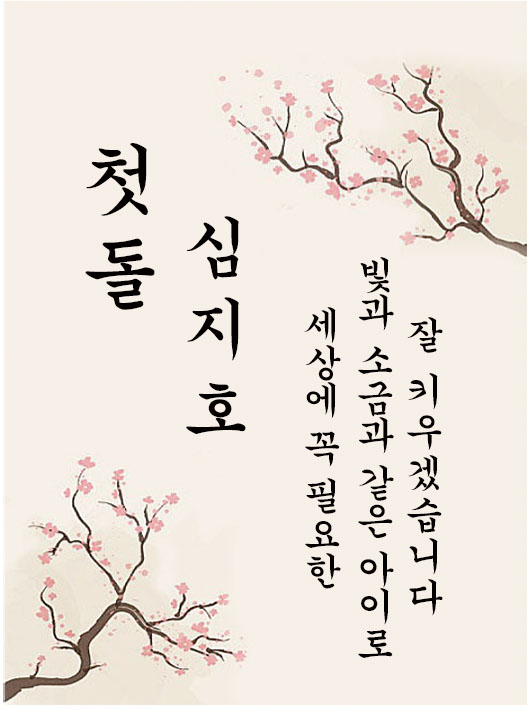 첫돌
심지호
세상에 꼭 필요한
빛과 소금과 같은 아이로
잘 키우겠습니다